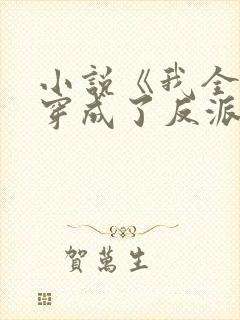 小説《我全
穿成了反派
賀萬生